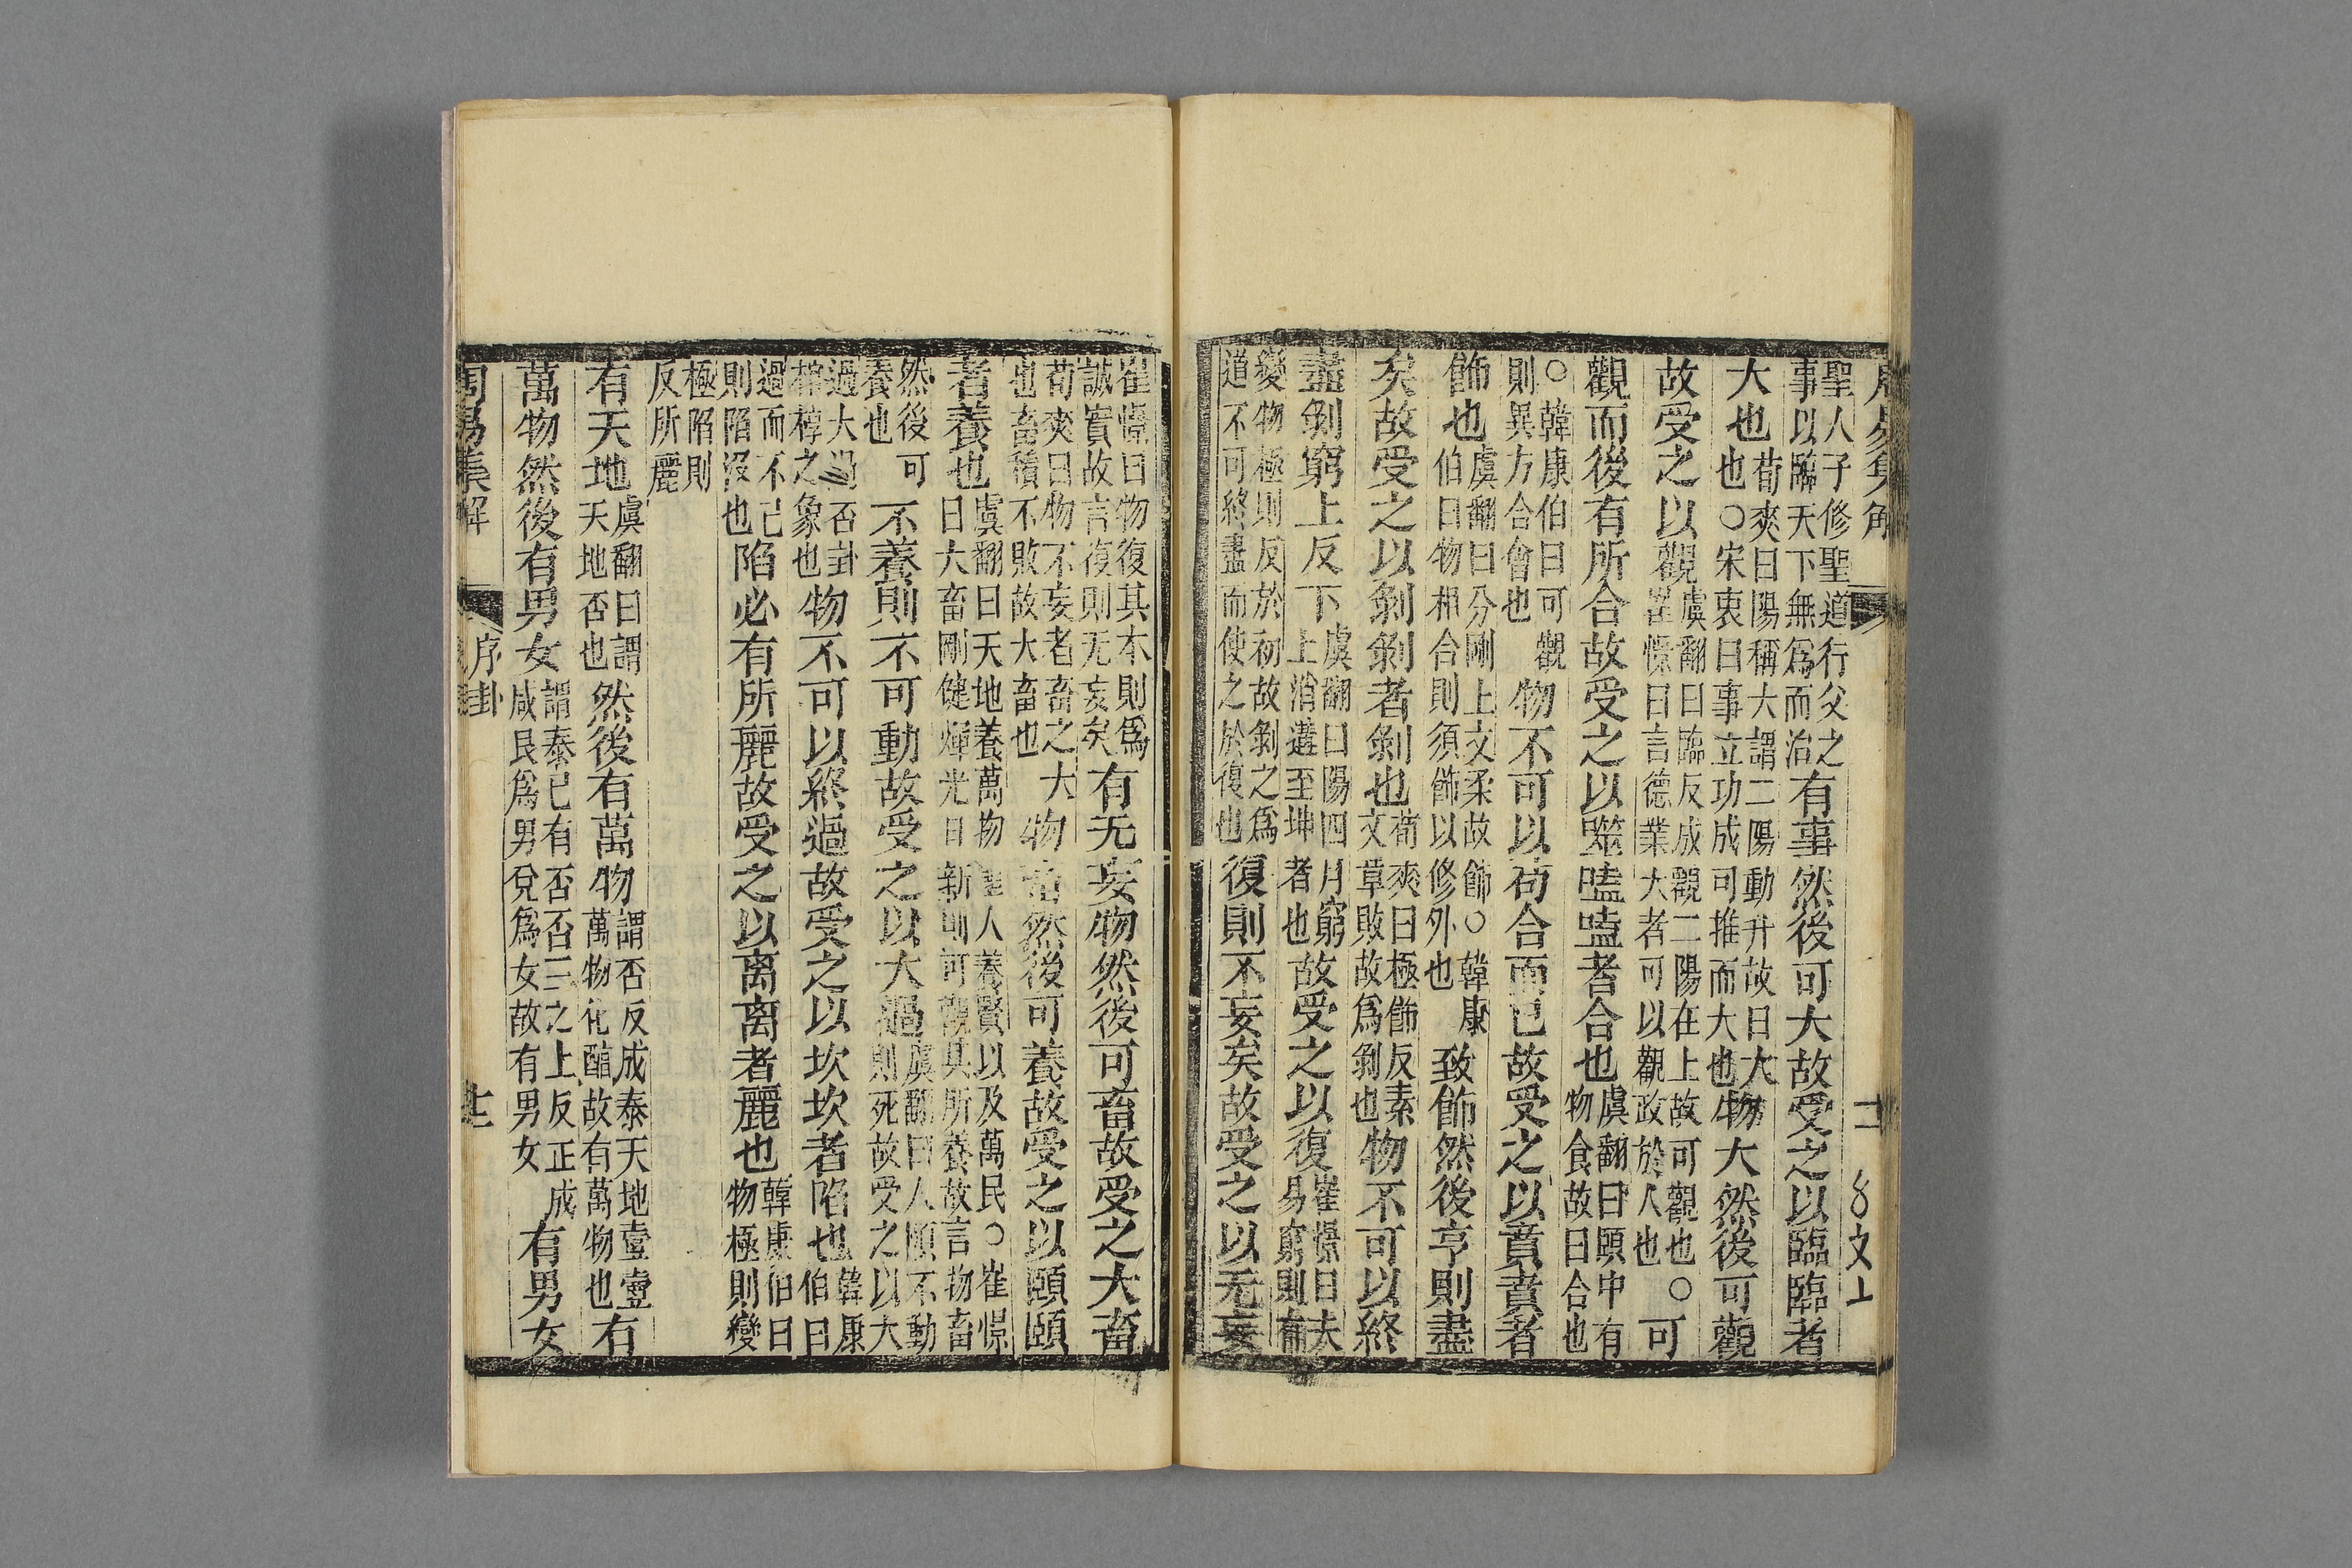 周易集解 二 文上
聖人子修聖道行父之
事以臨天下無爲而治
有事然後可大故受之以臨臨者
大也
荀爽曰陽稱大謂二陽動升故曰大
也○宋衷曰事立功成可推而大也
物大然後可觀
故受之以觀
虞翻曰臨反成觀二陽在上故可觀也○
崔憬曰言德業大者可以觀政於人也
可
觀而後有所合故受之以噬嗑嗑者合也
虞翻曰頤中有
物食故曰合也
○韓康伯曰可觀
則異方合會也
物不可以苟合而已故受之以賁賁者
飾也
虞翻曰分剛上文柔故飾○韓康
伯曰物相合則須飾以修外也
致飾然後亨則盡
矣故受之以剝剝者剝也
荀爽曰極飾反素
文章敗故爲剝也
物不可以終
盡剝窮上反下
虞翻曰陽四月窮
上消遘至坤者也
故受之以復
崔憬曰夫
易窮則有
變物極則反於初故剝之爲
道不可終盡而使之於復也
復則不妄矣故受之以无妄
崔憬曰物復其本則爲
誠實故言復則无妄矣
有无妄物然後可畜故受之大畜
荀爽曰物不妄者畜之大
也畜積不敗故大畜也
物畜然後可養故受之以頤頤
者養也
虞翻曰天地養萬物聖人養賢以及萬民○崔憬
曰大畜剛健煇光日新則可觀其所養故言物畜
然後可
養也
不養則不可動故受之以大過
虞翻曰人頤不動
則死故受之以大
過大過否卦
棺椁之象也
物不可以終過故受之以坎坎者陷也
韓康
伯曰
過而不已
則陷沒也
陷必有所麗故受之以离离者麗也
韓康伯曰
物極則變
極陷則
反所麗
有天地
虞翻曰謂
天地否也
然後有萬物
謂否反成泰天地壹壹
萬物化醕故有萬物也
有
萬物然後有男女
謂泰已有否否三之上反正成
咸艮爲男兌爲女故有男女
有男女
周易集解 序卦 七